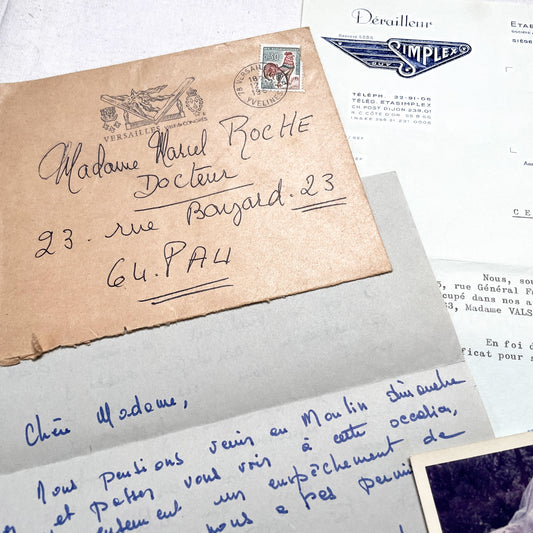 VERSAILLES
78 VERSAILLES
YVELINES
Madame Marcel ROCHE
Docteur
23. rue Bayard. 23
64. PAU
Dérailleur
SIMPLEX
TÉLÉPH. 32-91-06
TÉLÉG. ETASIMPLEX
CH. POST DIJON 239.01
R. C. CÔTE D'OR
ETAB
SIÈGE
CE
Nous, sou
5, rue Général F
cupé dans nos a
63, Madame VALS
En foi d
ficat pour s
Chère Madame,
Nous pensions venir au Moulin dimanche
et passer vous voir à cette occasion,
un empêchement de
nous a pas permi